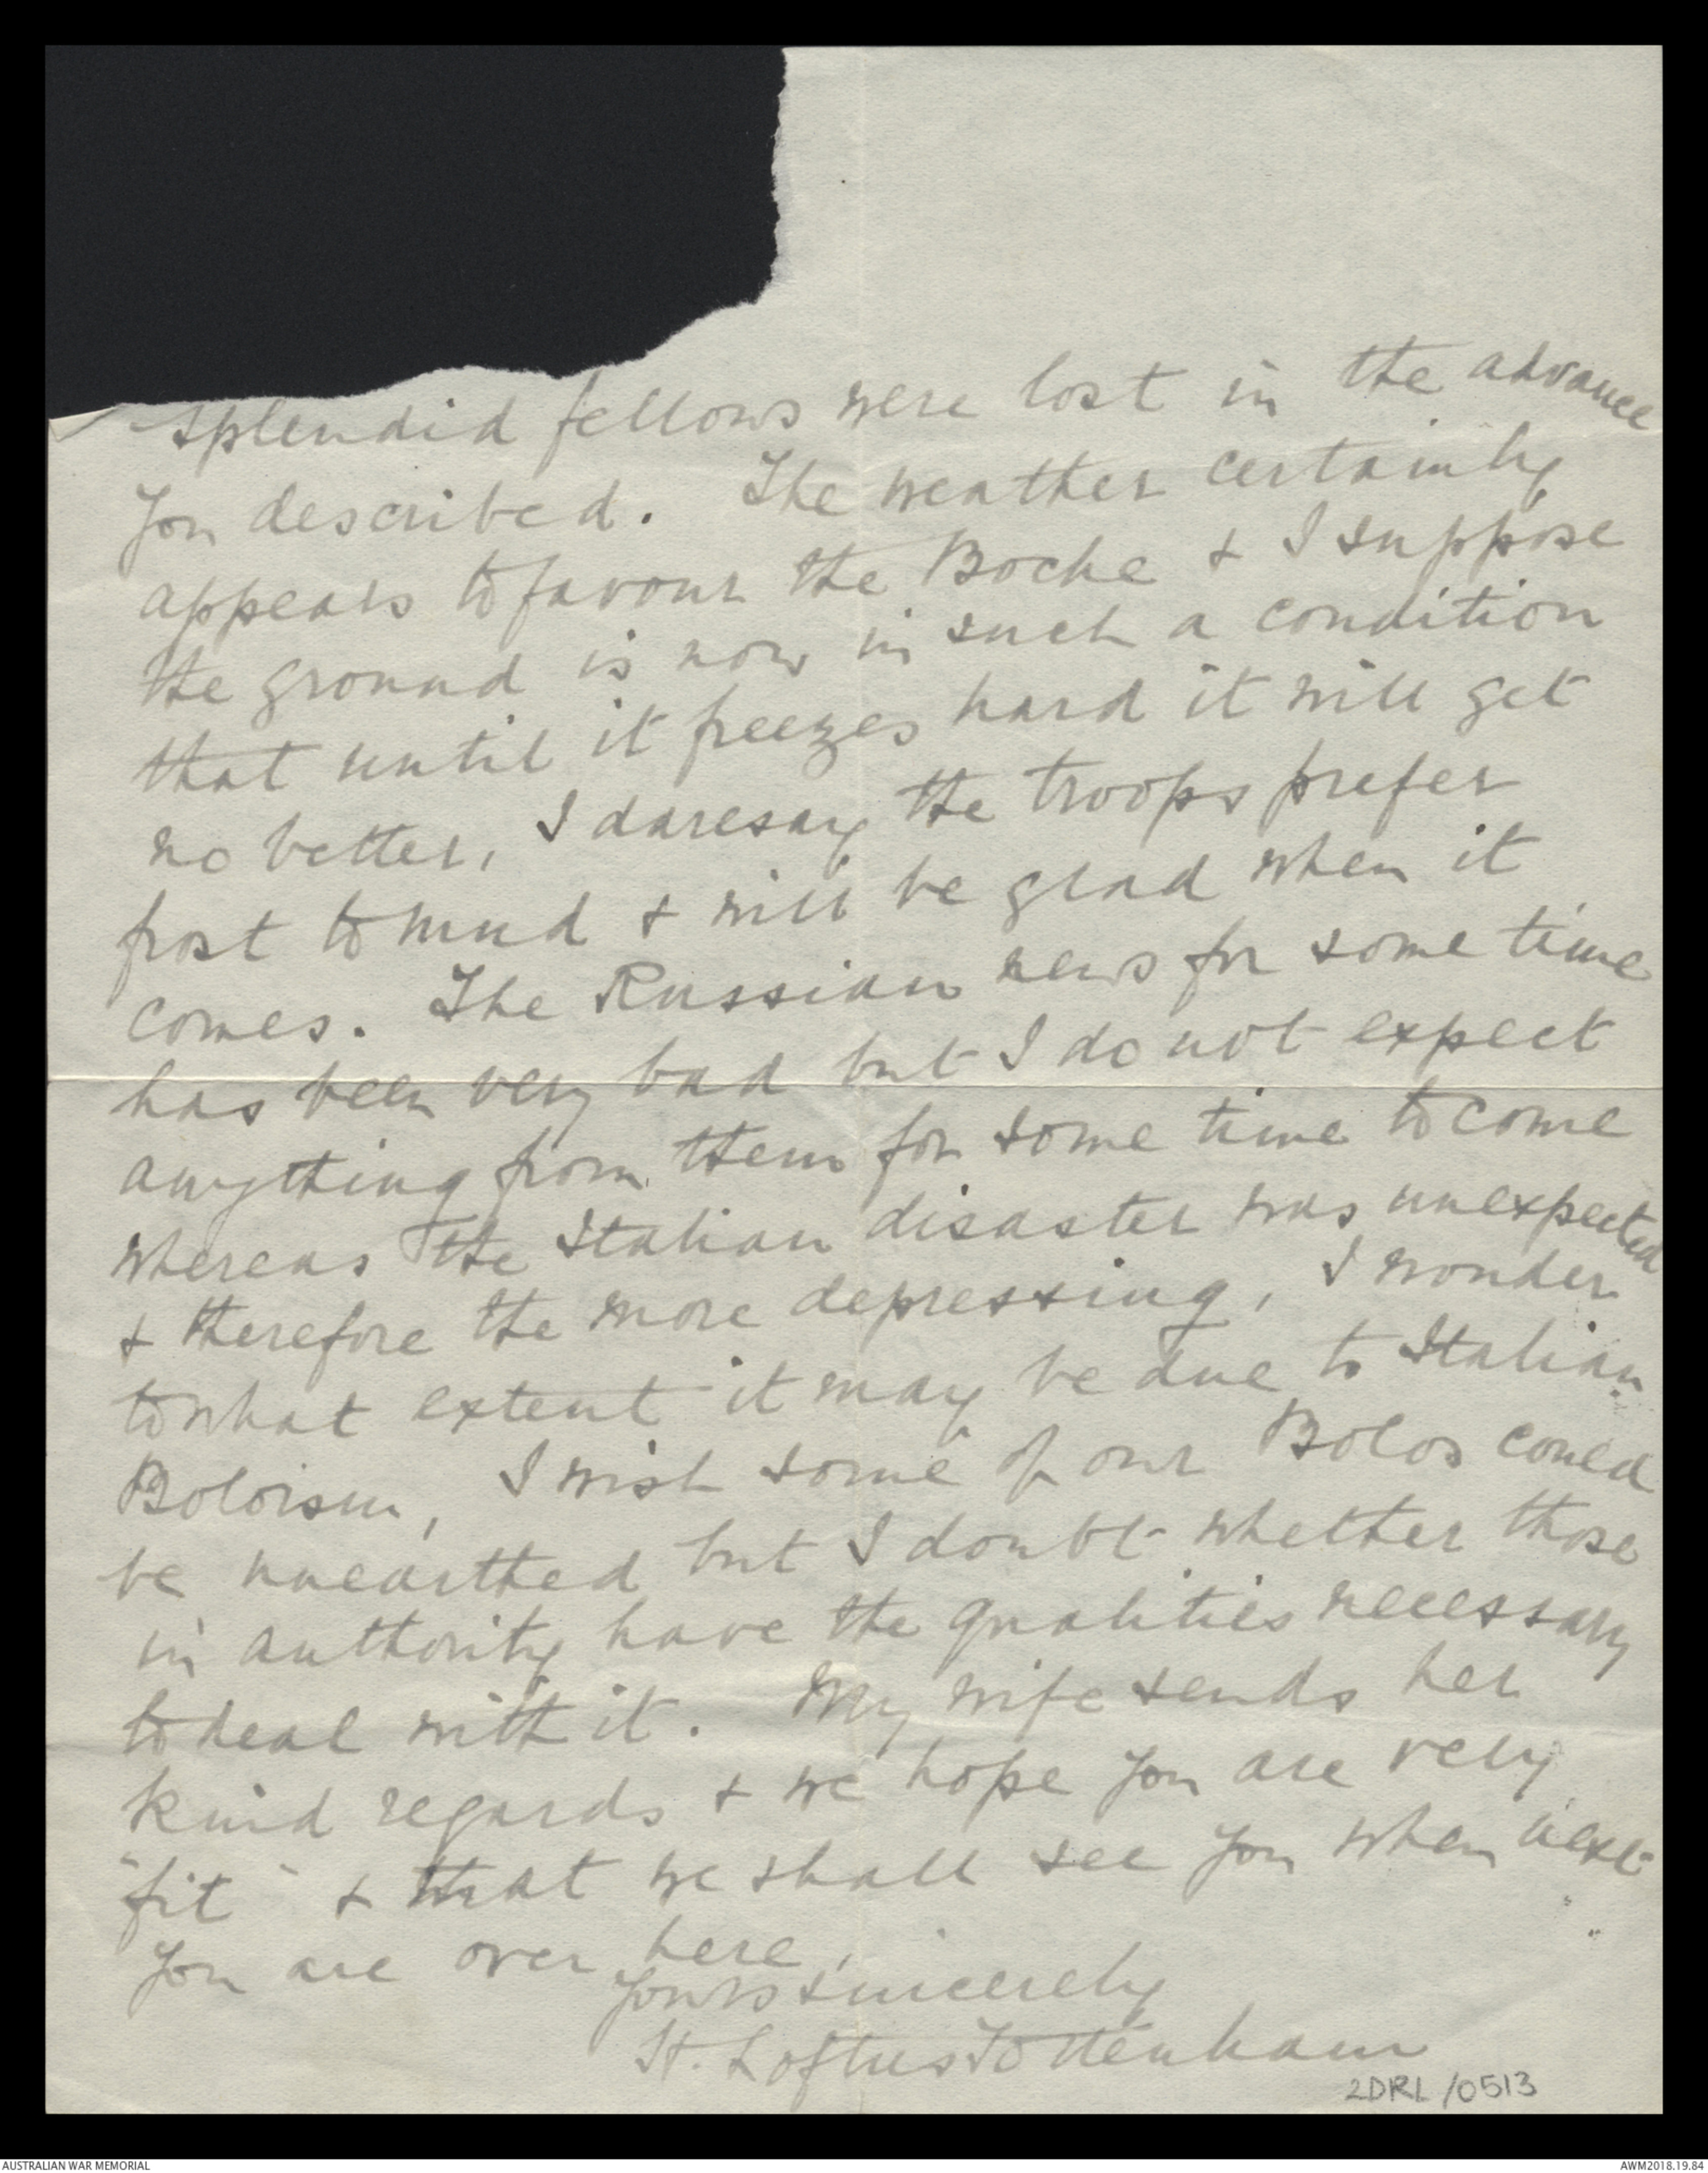 splendid fellows were lost in the advance
you described. The weather certainly
appears to favour the Boche & I suppose
the ground is now in such a condition
that until it freezes hard it will get
no better, I daresay the troops prefer
frost to mud & will be glad when it
comes. The Russian news for some time
has been very bad but I do not expect
anything from them for some time to come
whereas the Italian disaster was unexpected
& therefore the more depressing, I wonder
to what extent it may be due to Italian
Boloism, I wish some of our Bolos could
be unearthed but I doubt whether those
in authority have the qualities necessary
to deal with it. My wife sends her
kind regards & we hope you are very
"fit" & that we shall see you when next
you are over here,
Yours sincerely
H. Loftus Tottenham
2DRL/0513
AUSTRALIAN WAR MEMORIAL
AWM2018.19.84